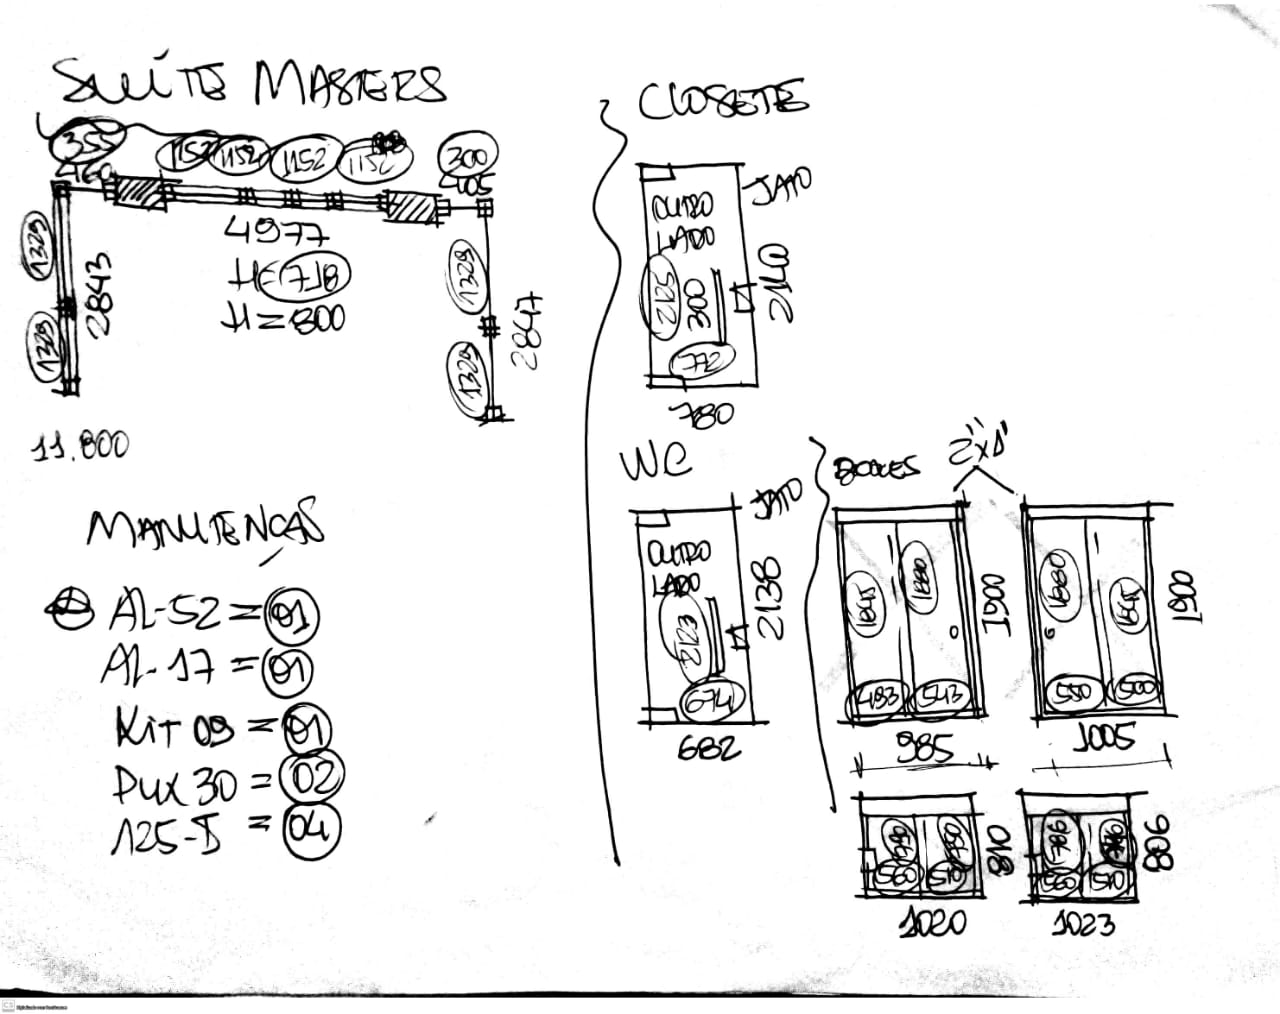 SUÍTE MASTERS
355
1152
1152
1152
1152
300
460
405
4977
H=718
H=800
1329
1329
2843
1329
1329
2847
11.800
MANUTENÇAS
AL-52 = 01
AL-17 = 01
KIT 09 = 01
PUX 30 = 02
125-D = 04
CLOSETE
JATO
OUTRO
LADO
2125
300
2140
772
780
WC
JATO
OUTRO
LADO
2123
2138
674
682
BOXES
2"x1"
1845
1880
1900
493
543
985
1880
1845
1900
550
500
1005
790
750
810
560
510
1020
786
806
560
510
1023